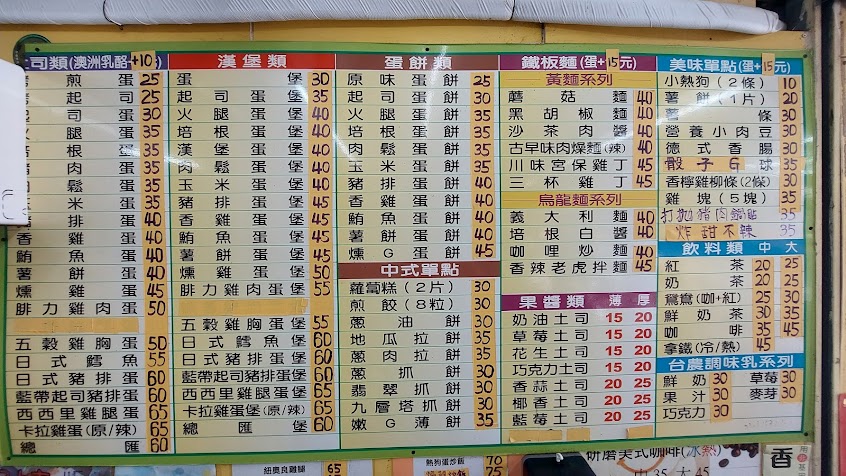 司類(澳洲乳酪+10元)
煎蛋 25
起司 25
司蛋 30
腿蛋 35
根蛋 35
肉蛋 35
鬆蛋 35
米蛋 35
排蛋 40
香雞蛋 40
鮪魚蛋 40
薯餅蛋 40
燻雞蛋 45
腓力雞肉蛋 50
五穀雞胸蛋 50
日式鱈魚 55
日式豬排蛋 60
藍帶起司豬排蛋 60
西西里雞腿蛋 65
卡拉雞蛋(原/辣) 65
總匯 60
漢堡類
蛋堡 30
起司蛋堡 35
火腿蛋堡 40
培根蛋堡 40
漢堡蛋堡 40
肉鬆蛋堡 40
玉米蛋堡 40
豬排蛋堡 45
香雞蛋堡 45
鮪魚蛋堡 45
薯餅蛋堡 45
燻雞蛋堡 50
腓力雞肉蛋堡 55
五穀雞胸蛋堡 55
日式鱈魚堡 60
日式豬排蛋堡 60
藍帶起司豬排蛋堡 60
西西里雞腿蛋堡 65
卡拉雞蛋堡(原/辣) 65
總匯堡 65
蛋餅類
原味蛋餅 25
起司蛋餅 30
火腿蛋餅 35
培根蛋餅 35
肉鬆蛋餅 35
玉米蛋餅 35
豬排蛋餅 40
香雞蛋餅 40
鮪魚蛋餅 40
薯餅蛋餅 40
燻G蛋餅 45
中式單點
蘿蔔糕(2片) 30
煎餃(8粒) 30
蔥油餅 30
地瓜拉餅 35
蔥肉拉餅 35
蔥抓餅 30
翡翠抓餅 30
九層塔抓餅 30
嫩G薄餅 35
鐵板麵(蛋+15元)
黃麵系列
蘑菇麵 40
黑胡椒麵 40
沙茶肉醬 40
古早味肉燥麵(辣) 40
川味宮保雞丁 45
三杯雞丁 45
烏龍麵系列
義大利麵 40
培根白醬 40
咖哩炒麵 40
香辣老虎拌麵 45
果醬類 薄 厚
奶油土司 15 20
草莓土司 15 20
花生土司 15 20
巧克力土司 15 20
香蒜土司 20 25
椰香土司 20 25
藍莓土司 20 25
美味單點(蛋+15元)
小熱狗(2條) 10
薯餅(1片) 20
薯條 30
營養小肉豆 30
德式香腸 30
骰子G球 35
香檸雞柳條(2條) 30
雞塊(5塊) 35
打拋豬肉鍋貼 35
炸甜不辣 35
飲料類 中 大
紅茶 20 25
奶茶 20 25
鴛鴦(咖+紅) 25 30
鮮奶茶 30 35
咖啡 35 45
拿鐵(冷/熱) 45
台農調味乳系列
鮮奶 30 草莓 30
果汁 30 麥芽 30
巧克力 30
紐奧良雞腿 65
熱狗蛋炒飯 70
75
研磨美式咖啡(冰熱)
中35/大45
香